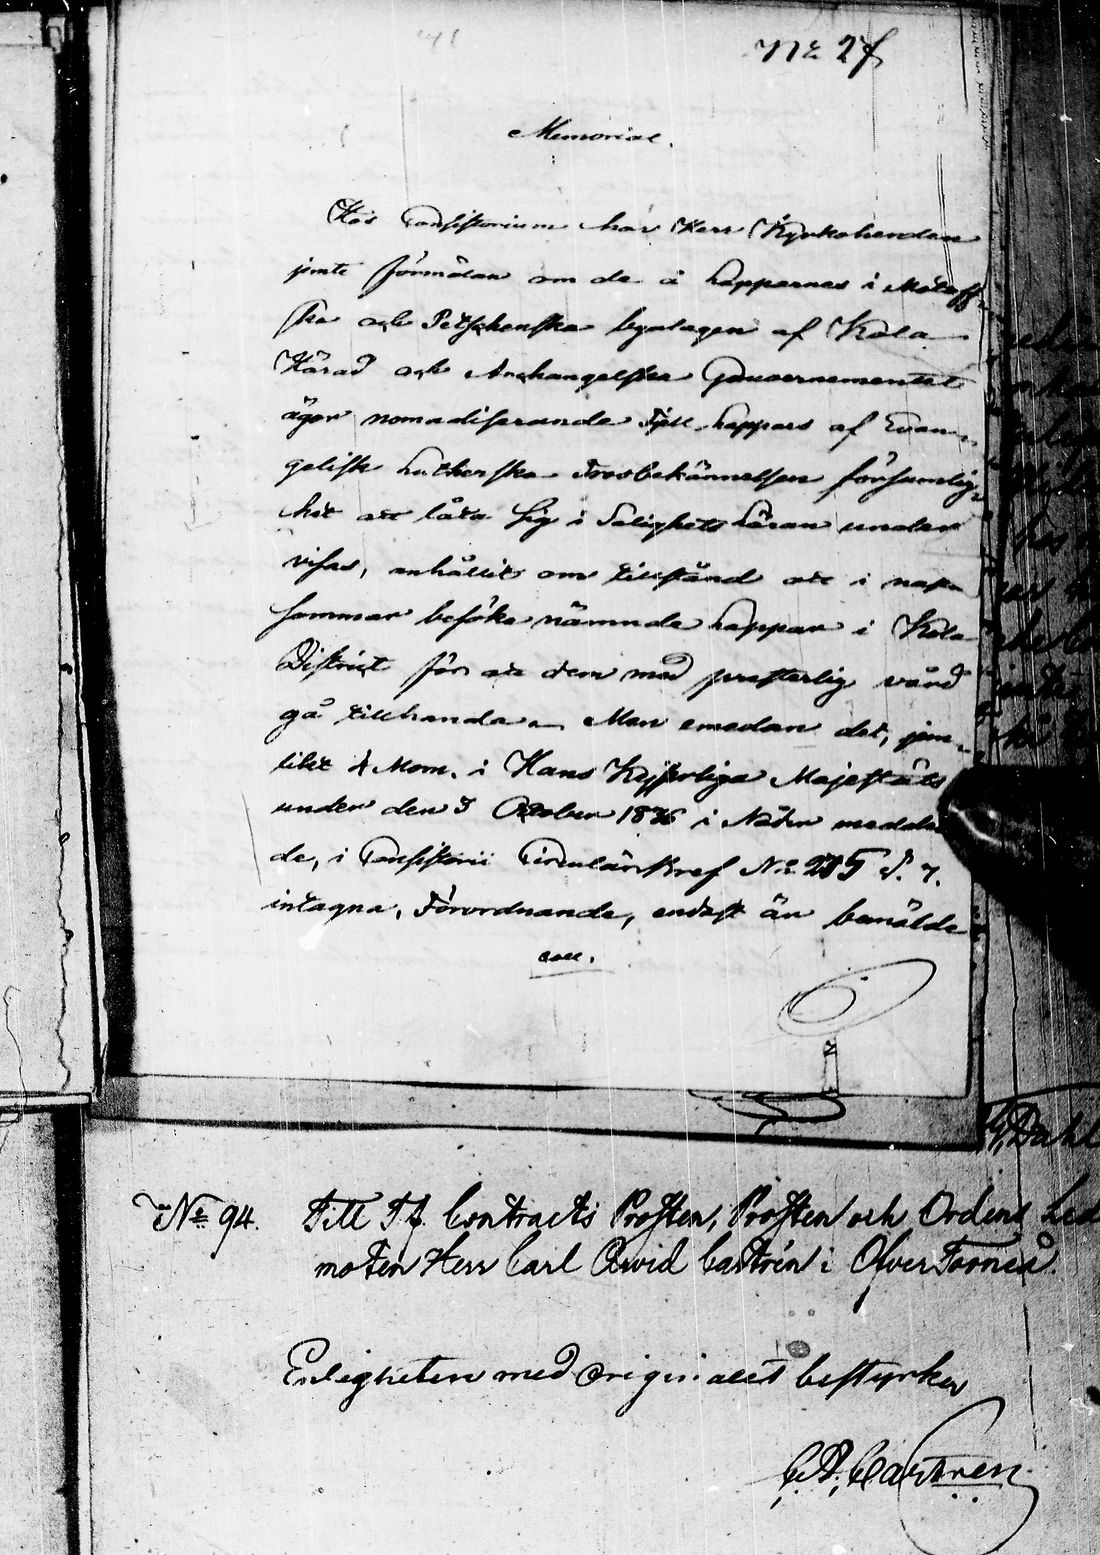 No 27
Memorial.
Hos Consistorium har Herr Kyrkoherden
jemte förmälan om de å Lappernes i Motoff-
ska och Petschenska byalagen af Kola
Härad och Archangelska Gouvernementet
ägor nomadiserande Fjell Lappars af Evan-
gelisk Lutherska Trosbekännelsen
att låta sig i Salighets Läran under
visas, anhållit om tillstånd att i
sommar besöka nämnde Lappar i Kola
District för att dem med presterlig vård
gå tillhanda. Men emedan det, jem-
likt 4 Mom. i Hans Kejserliga Majestäts
under den 3 October 1836 i Nåder medde
de, i Consistorii Circulärbref No 205 P. 7.
intagna, Förordnande, endast är bemälde
No 94. Till T. f. Contracts Prosten, Prosten och Ordens Led
moten Herr Carl Arvid Castrén i Öfver Torneå.
Enligheten med originalet bestyrker
C. A. Castren
G, Dahl